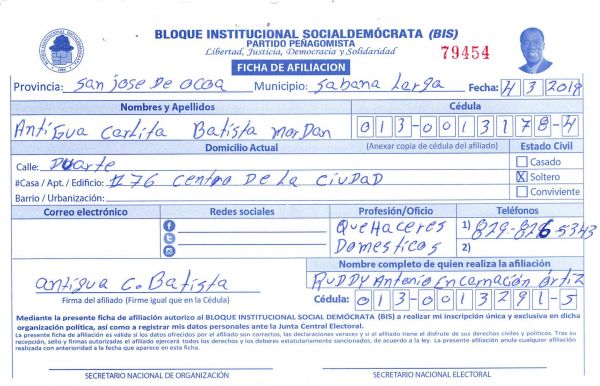 BLOQUE INSTITUCIONAL SOCIALDEMÓCRATA (BIS)
PARTIDO PEÑAGOMISTA
Libertad, Justicia, Democracia y Solidaridad
79454
FICHA DE AFILIACION
Provincia: San Jose De ocoa Municipio: Sabana Larga Fecha: 4 3 2018
Nombres y Apellidos Cédula
Antigua Carlita Batista mordan 013-0013178-4
Domicilio Actual (Anexar copia de cédula del afiliado) Estado Civil
Calle: Duarte Casado
#Casa / Apt. / Edificio: #76 centro De La ciudad X Soltero
Barrio / Urbanización: Conviviente
Correo electrónico Redes sociales Profesión/Oficio Teléfonos
QueHaceres 1) 829-826-5343
Domesticos 2)
Nombre completo de quien realiza la afiliación
antigua c. Batista RUDDY Antonio Encarnación ortiz
Firma del afiliado (Firme igual que en la Cédula) Cédula: 013-0013291-5
Mediante la presente ficha de afiliación autorizo al BLOQUE INSTITUCIONAL SOCIAL DEMÓCRATA (BIS) a realizar mi inscripción única y exclusiva en dicha
organización política, así como a registrar mis datos personales ante la Junta Central Electoral.
La presente ficha de afiliación es válida si los datos ofrecidos por el afiliado son correctos, las declaraciones veraces y si el afiliado tiene el disfrute de sus derechos civiles y políticos. Tras su
recepción, sello y firmas autorizadas el afiliado ejercerá todos los derechos y los deberes estatutariamente sancionados, de acuerdo a la ley. La presente afiliación anula cualquier afiliación
realizada con anterioridad a la fecha que aparece en esta ficha.
SECRETARIO NACIONAL DE ORGANIZACIÓN SECRETARIO NACIONAL ELECTORAL